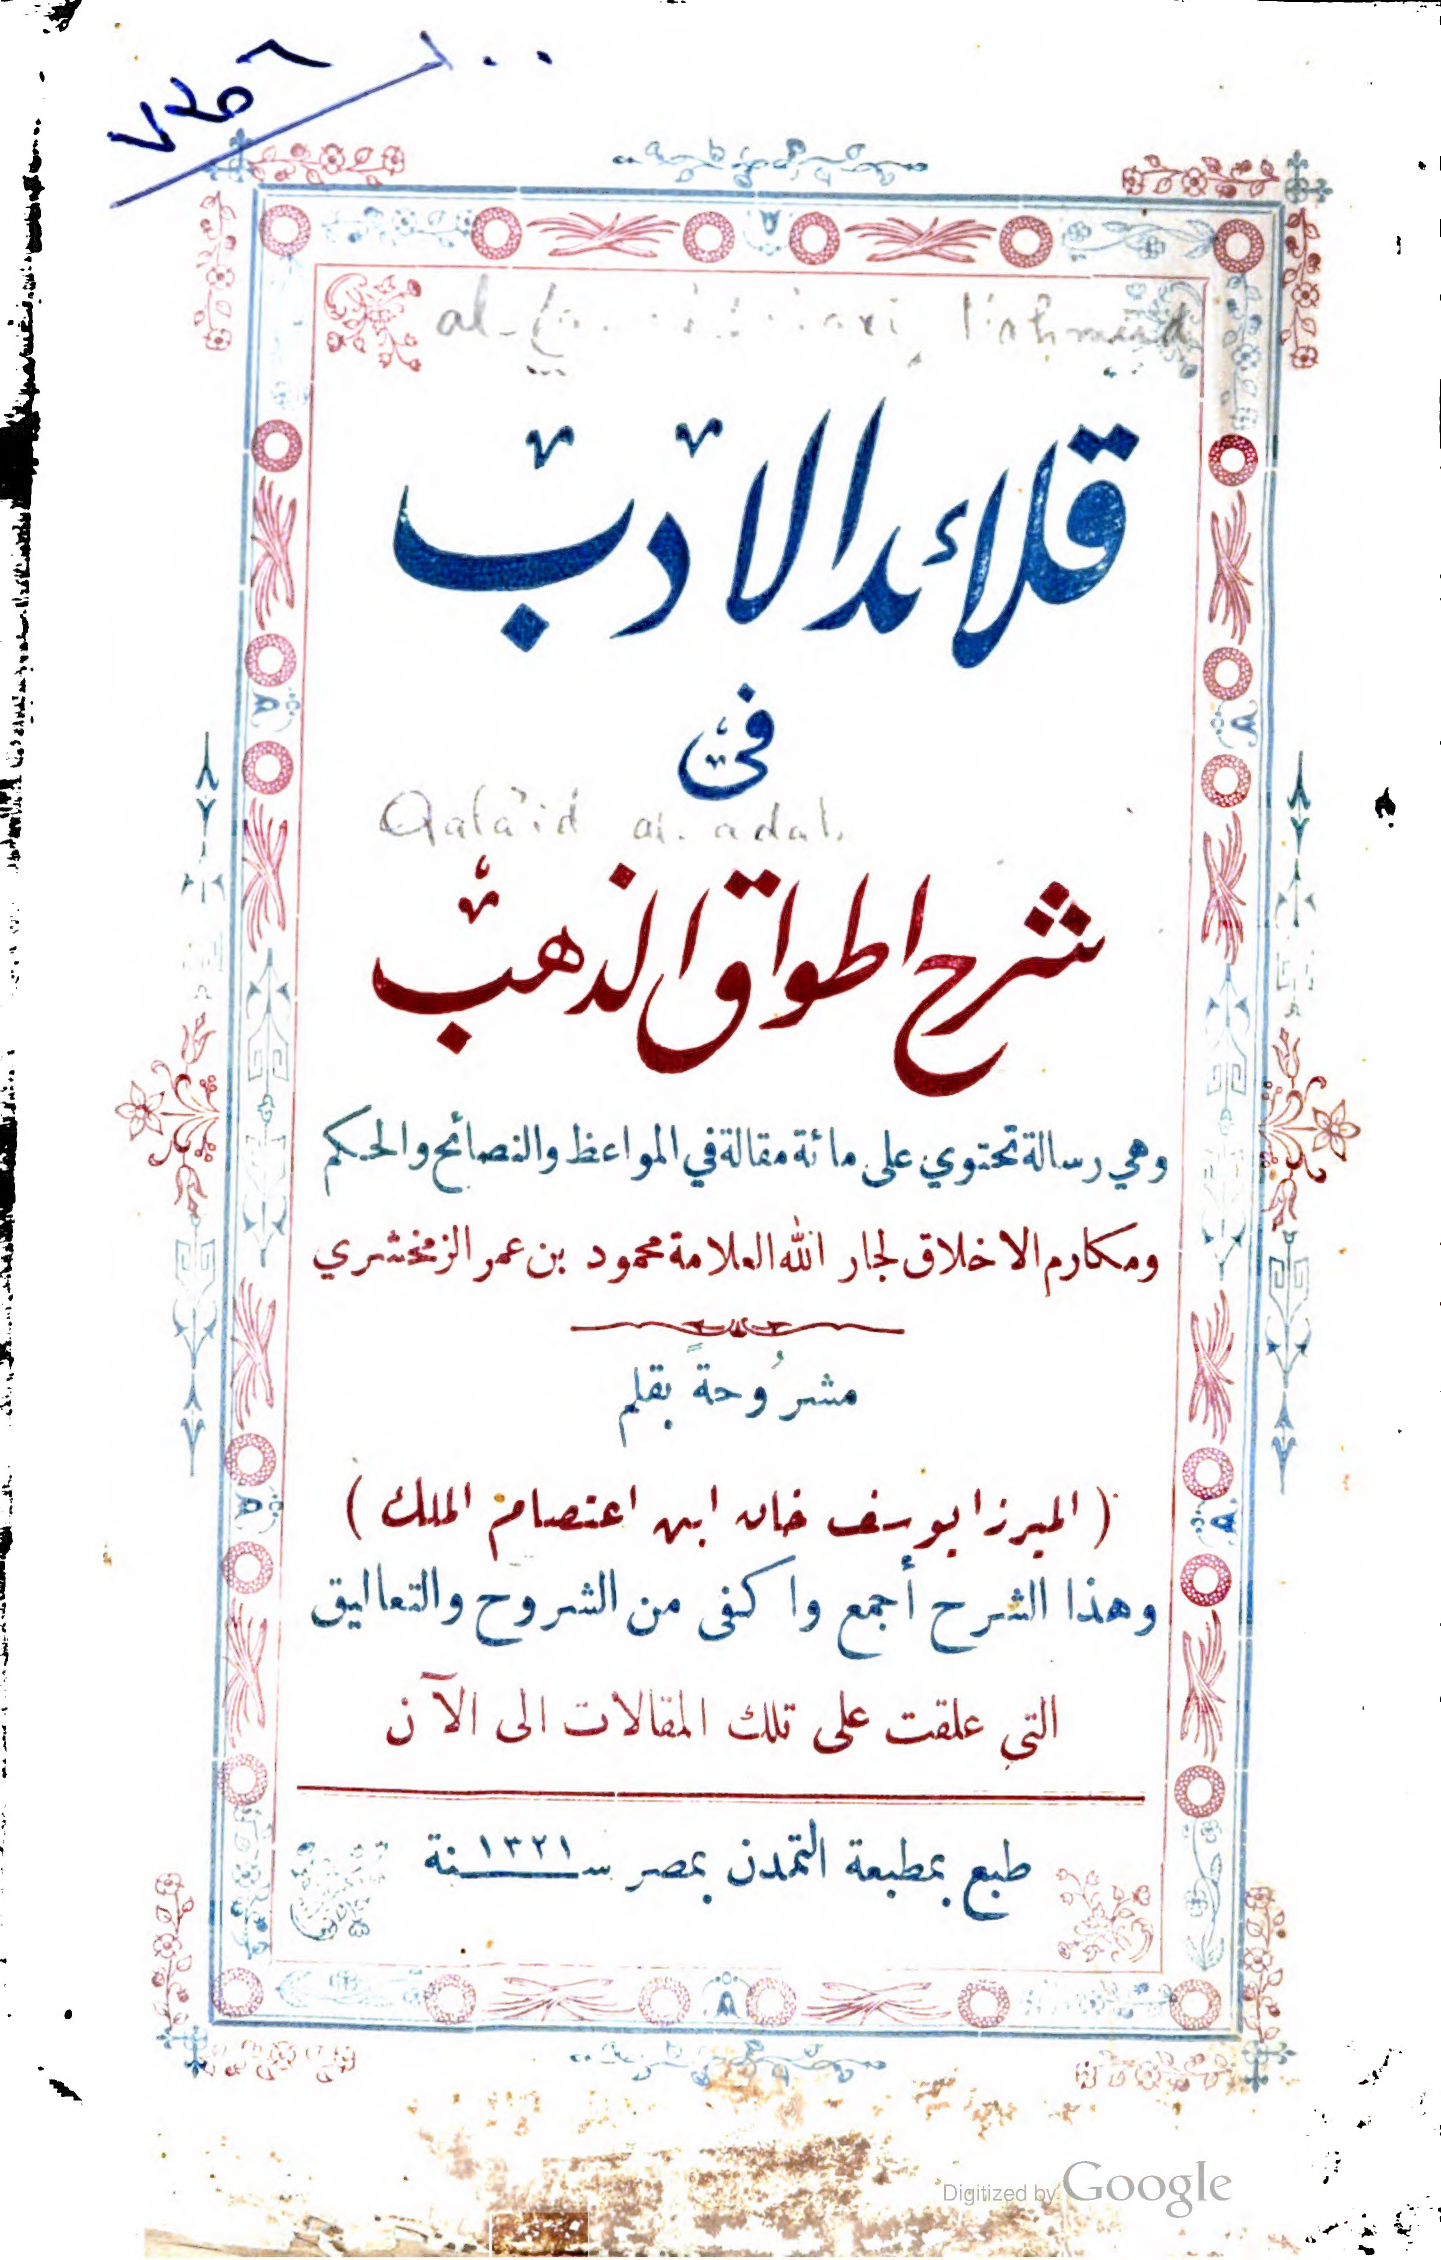 قلائد الادب
في
Qalā'id al-adab
شرح اطواق الذهب
وهي رسالة تحتوي على مائة مقالة في المواعظ والنصائح والحكم
ومكارم الاخلاق لجار الله العلامة محمود بن عمر الزمخشري
مشرُوحةً بقلم
( الميرزا يوسف خان ابن اعتصام الملك )
وهذا الشرح أجمع واكفى من الشروح والتعاليق
التي علقت على تلك المقالات الى الآن
طبع بمطبعة التمدن بمصر سنة ١٣٢١
Digitized by Google